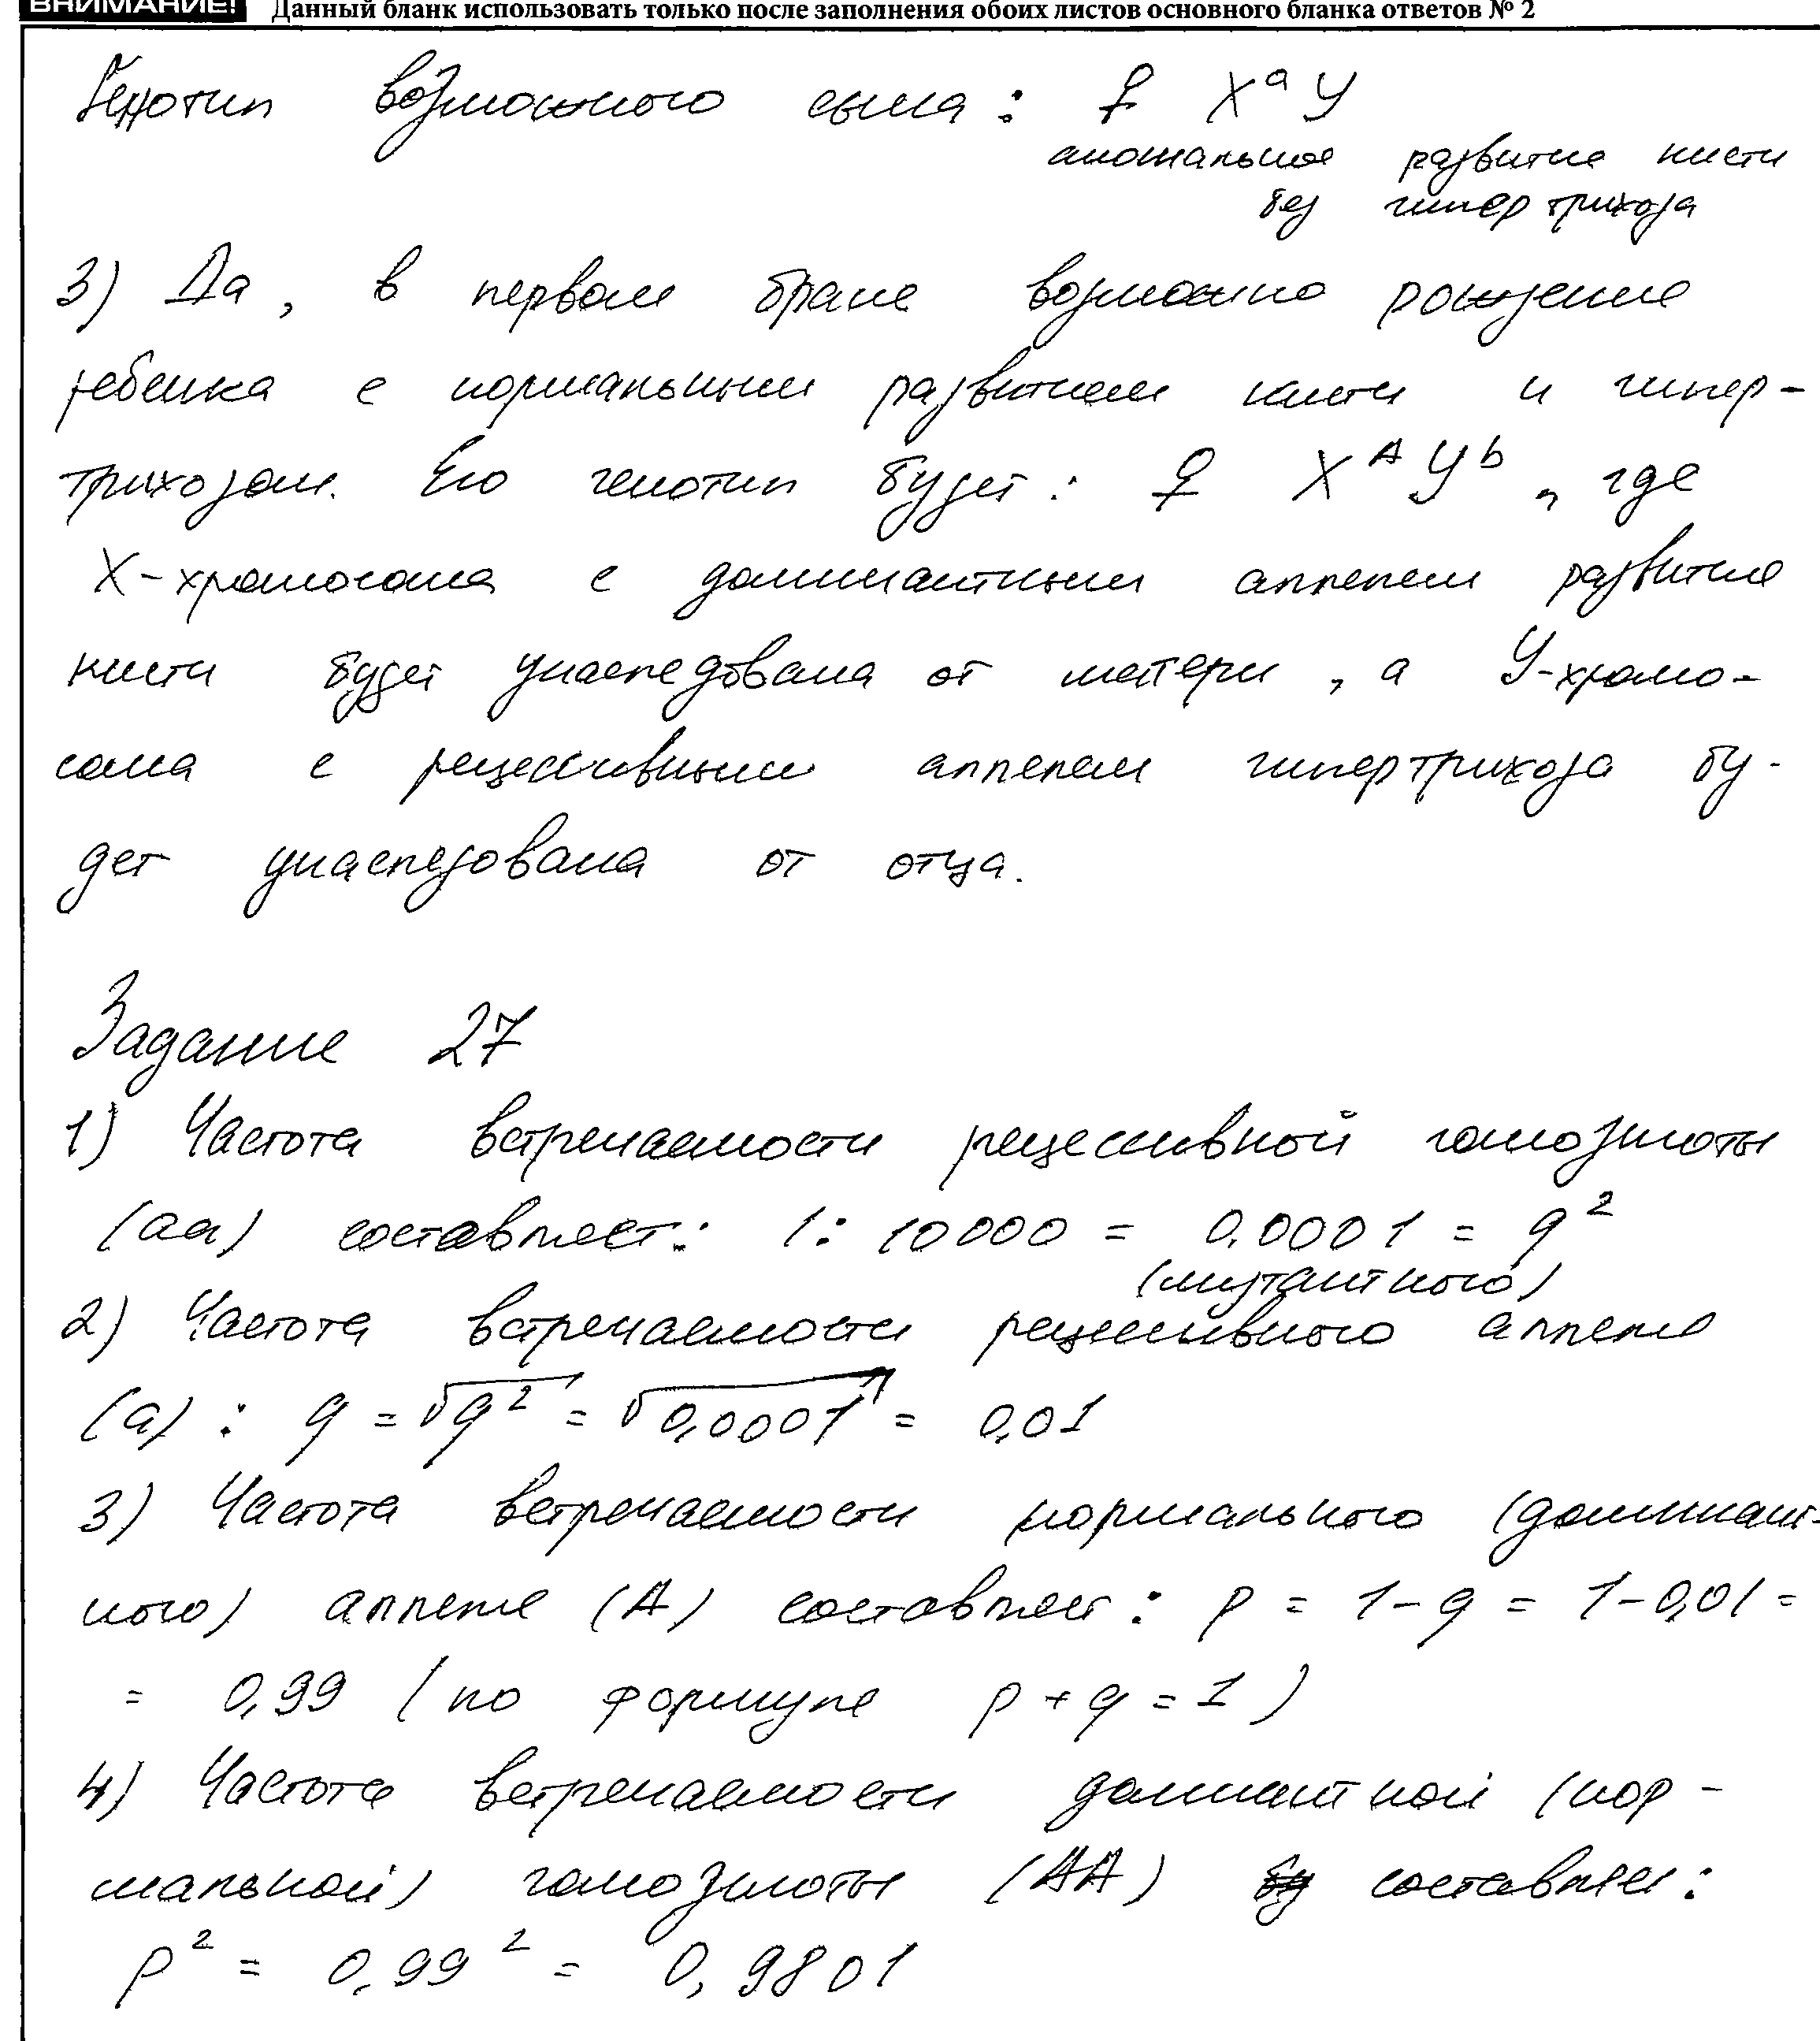 ВНИМАНИЕ! Данный бланк использовать только после заполнения обоих листов основного бланка ответов № 2
Генотип возможного сына : ♀ XᵃY
аномальное развитие кисти
без гипертрихоза
3) Да, в первом браке возможно рождение
ребенка с нормальным развитием кисти и гипер-
трихозом. Его генотип будет : ♀ XᴬYᵇ, где
X-хромосома с доминантным аллелем развитие
кисти будет унаследована от матери, а Y-хромо-
сома с рецессивным аллелем гипертрихоза бу-
дет унаследована от отца.
Задание 27
1) Частота встречаемости рецессивной гомозиготы
(aa) составляет: 1 : 10000 = 0,0001 = q²
(мутантного)
2) Частота встречаемости рецессивного аллеля
(a) : q = √q² = √0,0001 = 0,01
3) Частота встречаемости нормального (доминант-
ного) аллеля (A) составляет : p = 1 - q = 1 - 0,01 =
= 0,99 (по формуле p + q = 1)
4) Частота встречаемости доминантной (нор-
мальной) гомозиготы (AA) составляет :
p² = 0,99² = 0,9801